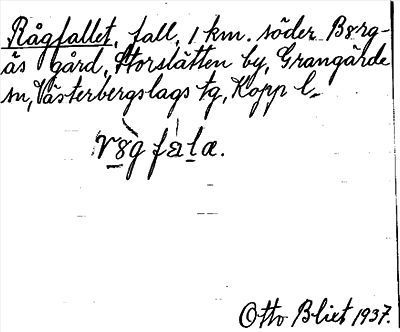 Rågfallet, fall, 1 km. söder Berg-
ås gård, Storslätten by, Grangärde
sn, Västerbergslags tg, Kopp l.
Otto Blixt 1937.